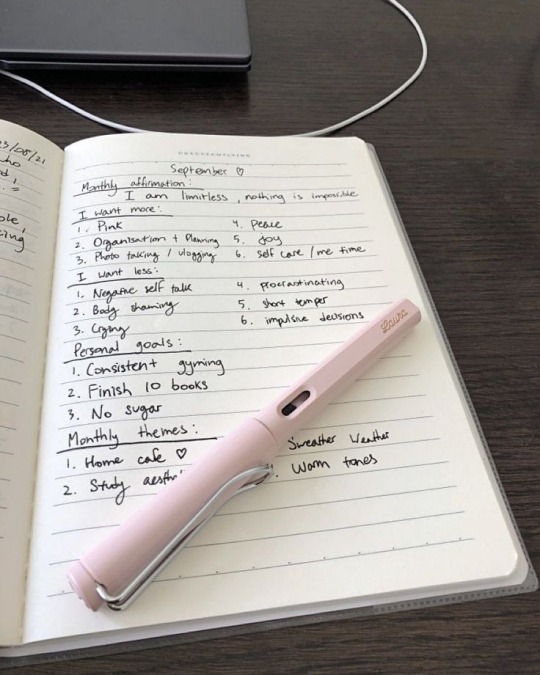 3/08/21
September ♡
Monthly affirmation:
I am limitless, nothing is impossible
I want more:
1. Pink
2. Organisation + Planning
3. Photo taking / vlogging
4. Peace
5. Joy
6. Self care / me time
I want less:
1. Negative self talk
2. Body shaming
3. Crying
4. procrastinating
5. short temper
6. impulsive decisions
Personal goals:
1. Consistent gyming
2. Finish 10 books
3. No sugar
Monthly themes:
1. Home cafe ♡
2. Study aesth
Sweather Weather
4. Warm tones
Laura